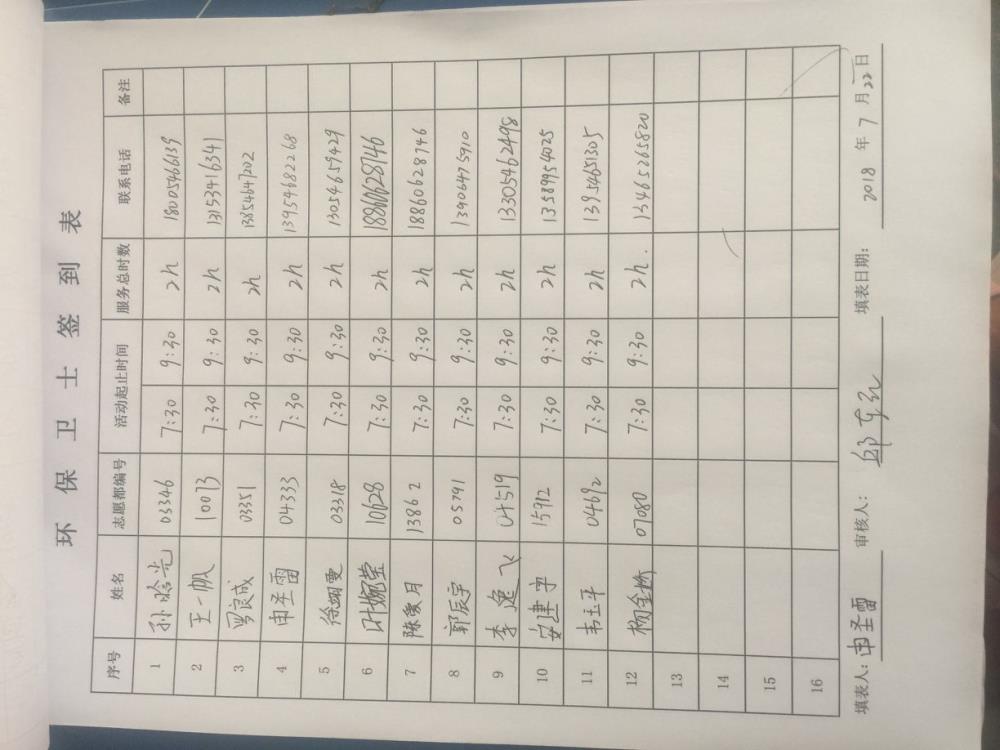 环保卫士签到表
序号 姓名 志愿都编号 活动起止时间 服务总时数 联系电话 备注
1 孙晗光 03346 7:30 9:30 2h 18005466139
2 王一帆 10073 7:30 9:30 2h
3 罗良成 03351 7:30 9:30 2h 13854647202
4 申圣雷 04333 7:30 9:30 2h 13954682268
5 徐翊雯 03318 7:30 9:30 2h 13054659429
6 叶婉莹 10628 7:30 9:30 2h 18860628746
7 陈爱月 13862 7:30 9:30 2h 18860628746
8 郭辰宇 05791 7:30 9:30 2h 13906475910
9 李逸飞 04519 7:30 9:30 2h 13305462498
10 安建宇 15912 7:30 9:30 2h 13589954025
11 韦玉平 04692 7:30 9:30 2h 13954651305
12 07080 7:30 9:30 2h. 13465265820
13
14
15
16
填表人: 申圣雷 审核人: 填表日期: 2018 年 7 月 22 日